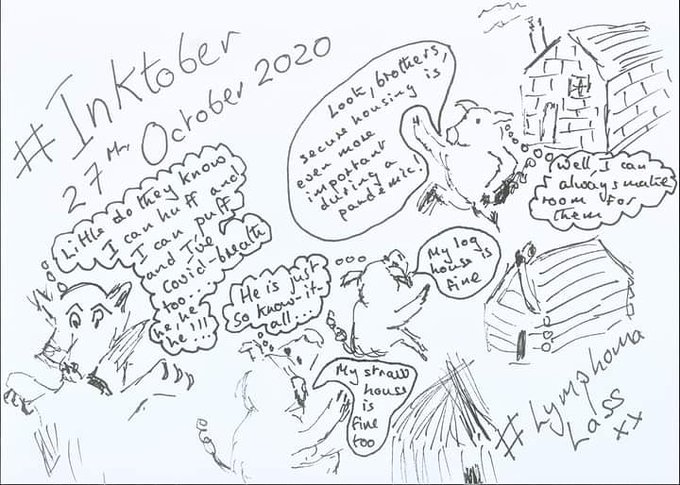 #Inktober
27th October 2020
Look, brothers,
secure housing is
even more
important
during a
pandemic!
Well, I can
always make
room for
them
Little do they know
I can huff and
I can puff
and I've
Covid-breath
too...
he, he,
he!!!
He is just
so know-it-
all...
My log
house is
fine
My straw
house
is
fine
too
#Lymphoma
Lass
xx